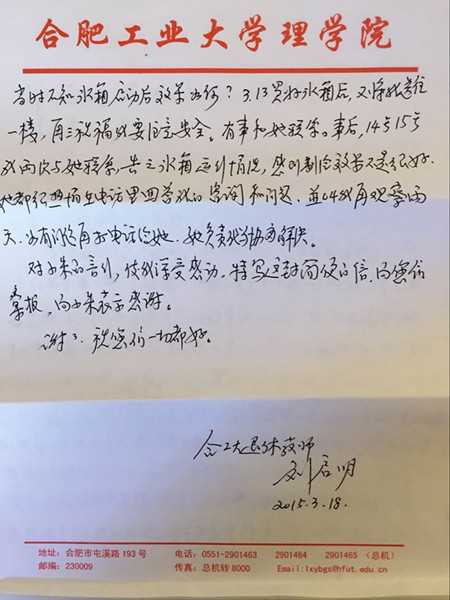 合肥工业大学理学院
当时不知冰箱启动后效果如何？3.13买好冰箱后，又将我送往
一楼，再三祝福我要注意安全。有事和她联系。事后，14号15号
我两次与她联系，告之冰箱运行情况，感到制冷效果不是很好。
她都很热情在电话里回答我的咨询和问题，並让我再观察两
天，如有问题再打电话给她，她负责我协商解决。
对小朱的言行，使我深受感动，特写这封简短的信，向您们
禀报，向小朱表示感谢。
谢谢！祝您们一切都好。
合工大退休教师
刘启明
2015.3.18.
地址：合肥市屯溪路193号 电话：0551-2901463 2901464 2901465（总机）
邮编：230009 传真：总机转8000 Email:lxybgs@hfut.edu.cn